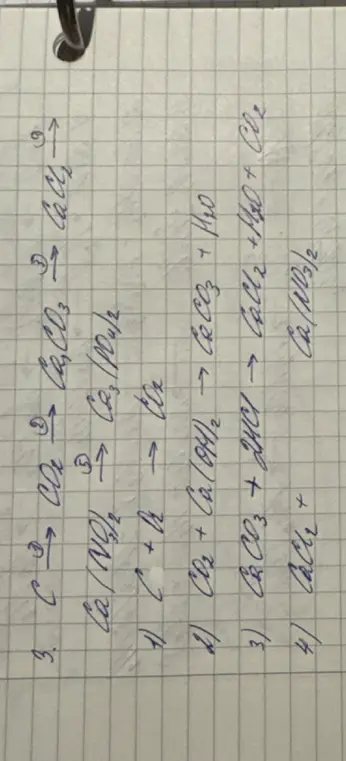 3. C →① CO2 →② CaCO3 →③ CaCl2 →④
Ca(NO3)2 →⑤ Ca3(PO4)2
1) C + O2 → CO2
2) CO2 + Ca(OH)2 → CaCO3 + H2O
3) CaCO3 + 2HCl → CaCl2 + H2O + CO2
4) CaCl2 + Ca(NO3)2